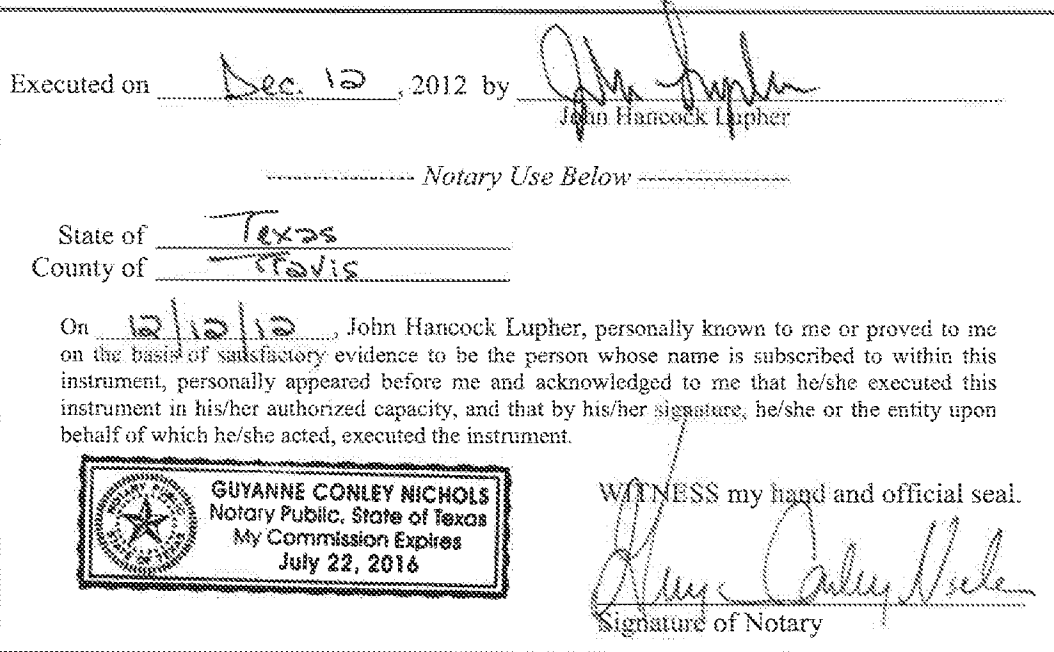 Executed on Dec. 12, 2012 by John Lupher
John Hancock Lupher
Notary Use Below
State of Texas
County of Travis
On 12/12/12, John Hancock Lupher, personally known to me or proved to me
on the basis of satisfactory evidence to be the person whose name is subscribed to within this
instrument, personally appeared before me and acknowledged to me that he/she executed this
instrument in his/her authorized capacity, and that by his/her signature, he/she or the entity upon
behalf of which he/she acted, executed the instrument.
NOTARY PUBLIC
STATE OF TEXAS
GUYANNE CONLEY NICHOLS
Notary Public, State of Texas
My Commission Expires
July 22, 2016
WITNESS my hand and official seal.
Signature of Notary